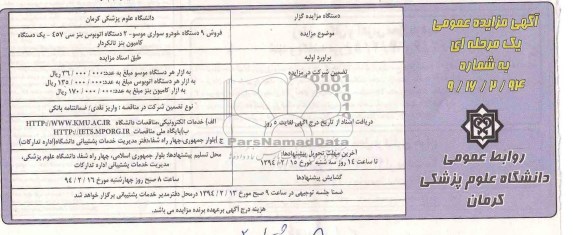 آگهی مزایده عمومی
یک مرحله ای
به شماره
۹/۱۷/۲/۹۴
روابط عمومی
دانشگاه علوم پزشکی
کرمان
دستگاه مزایده گزار
دانشگاه علوم پزشکی کرمان
موضوع مزایده
فروش ۹ دستگاه خودرو سواری موسو - ۲ دستگاه اتوبوس بنز سی ۴۵۷ - یک دستگاه
کامیون بنز تانکردار
براورد اولیه
طبق اسناد مزایده
تضمین شرکت در مزایده
به ازار هر دستگاه موسو مبلغ به عدد: ۳۶/۰۰۰/۰۰۰ ریال
به ازار هر دستگاه اتوبوس مبلغ به عدد: ۱۳۵/۰۰۰/۰۰۰ ریال
به ازار کامیون بنز مبلغ به عدد: ۱۷۰/۰۰۰/۰۰۰ ریال
نوع تضمین شرکت در مناقصه: واریز نقدی/ ضمانتنامه بانکی
دریافت اسناد از تاریخ درج آگهی لغایت ۵ روز
الف) خدمات الکترونیکی-مناقصات دانشگاه HTTP://WWW.KMU.AC.IR
ب) پایگاه ملی مناقصات HTTP://IETS.MPORG.IR
ج) بلوار جمهوری چهار راه شفا، دفتر مدیریت خدمات پشتیبانی دانشگاه (اداره تدارکات)
ParsNamadData
آخرین مهلت تحویل پیشنهادها:
تا ساعت ۱۴ روز سه شنبه مورخ ۱۳۹۴/۰۲/۱۵
محل تسلیم پیشنهادها: بلوار جمهوری اسلامی، چهار راه شفا، دانشگاه علوم پزشکی،
مدیریت خدمات پشتیبانی اداره تدارکات
گشایش پیشنهادها
ساعت ۸ صبح روز چهارشنبه مورخ ۹۴/۰۲/۱۶
ضمنا جلسه توجیهی در ساعت ۹ صبح مورخ ۱۳۹۴/۲/۱۳ درمحل دفتر مدیر خدمات پشتیبانی برگزار خواهد شد
هزینه درج آگهی برعهده برنده مزایده می باشد.